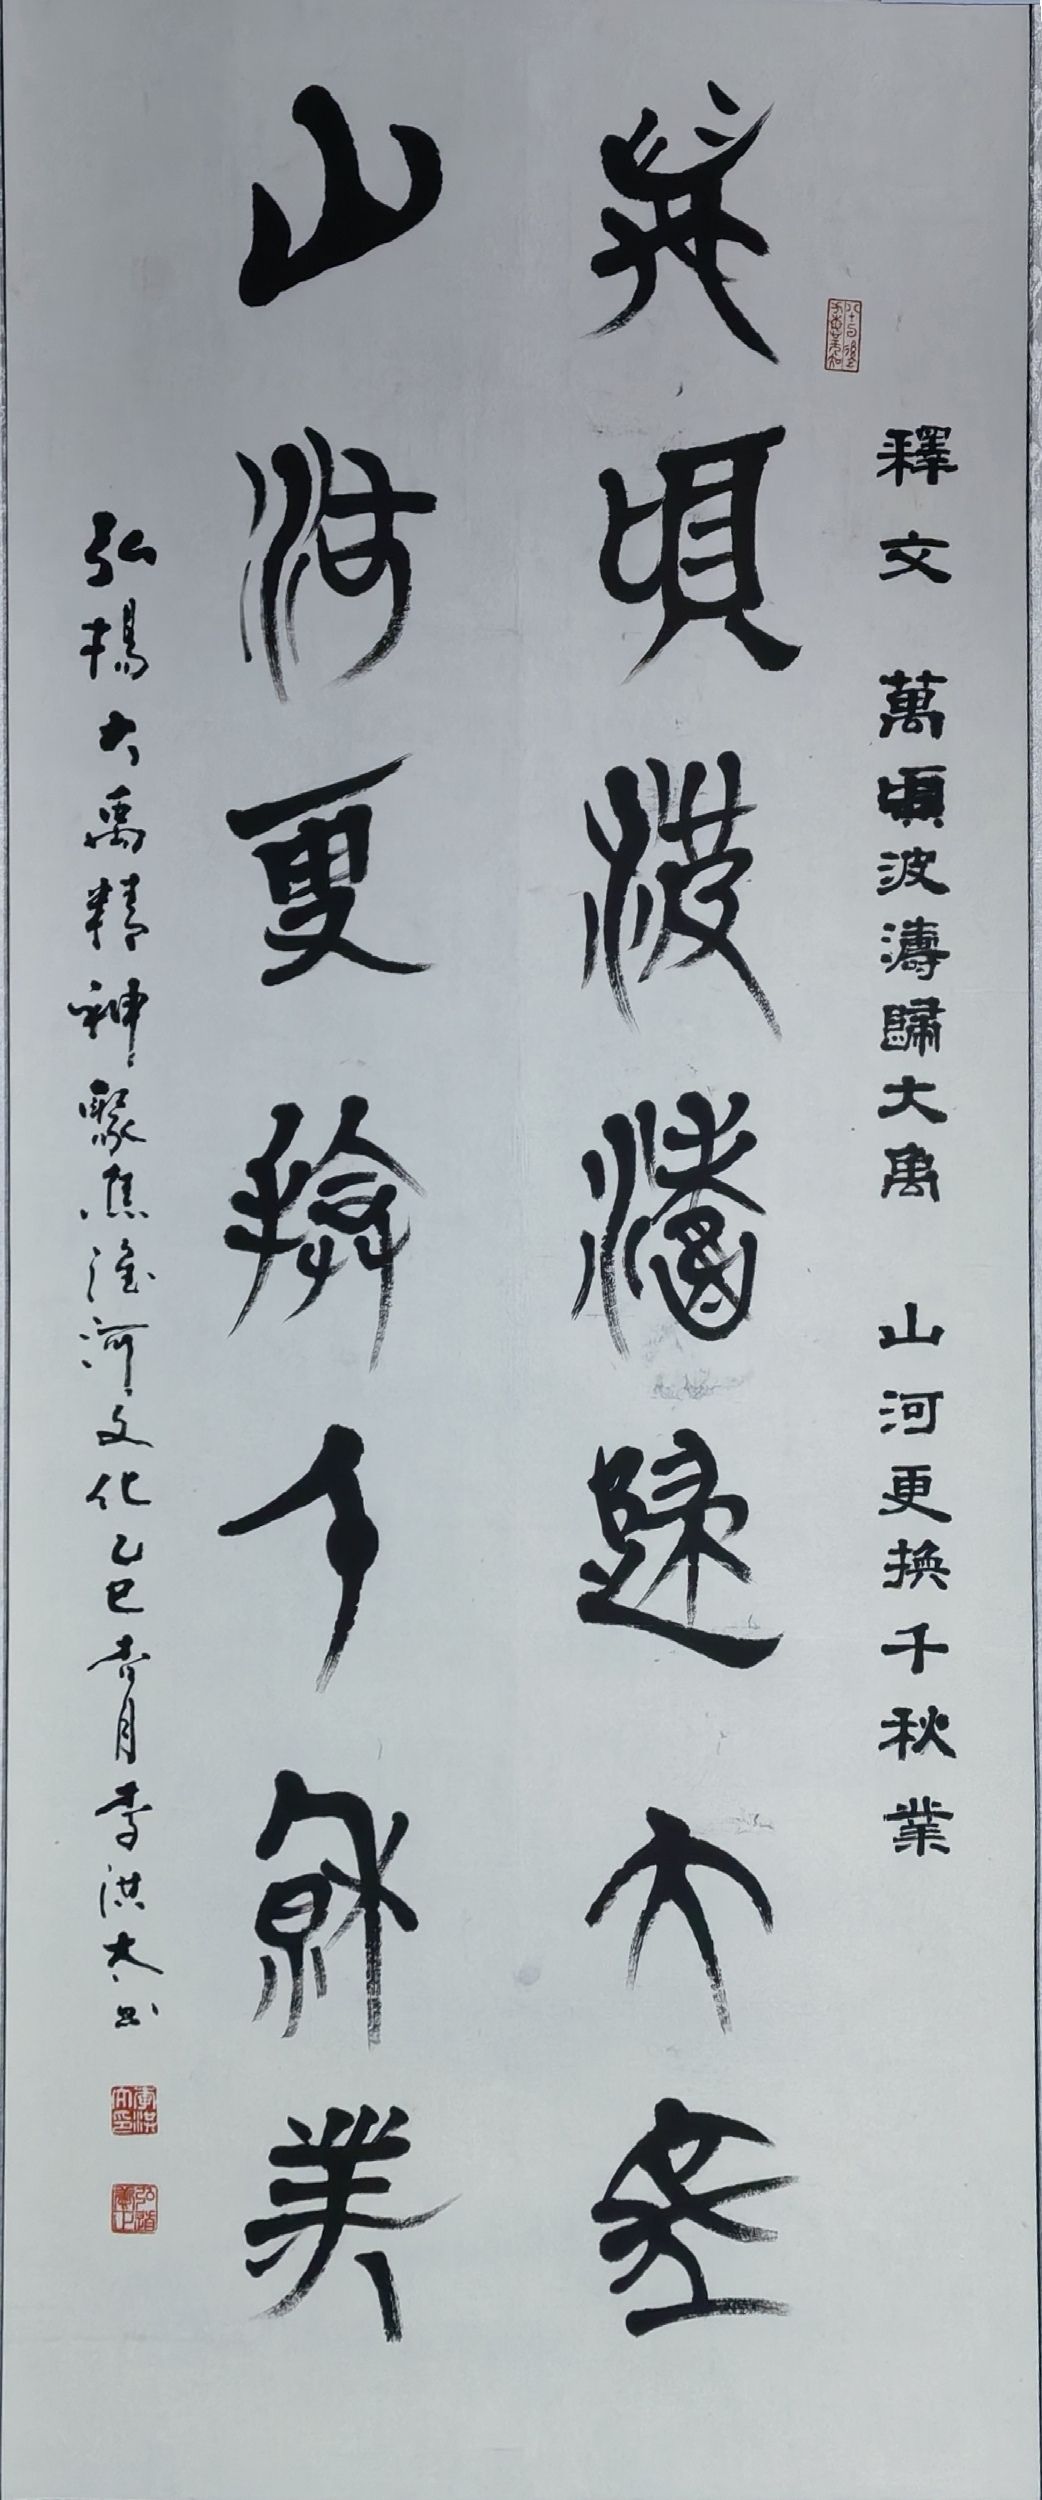 釋文 萬頃波濤歸大禹 山河更換千秋業
萬頃波濤歸大禹
山河更換千秋業
弘楊大禹精神聚焦淮河文化乙巳杏月李洪大书